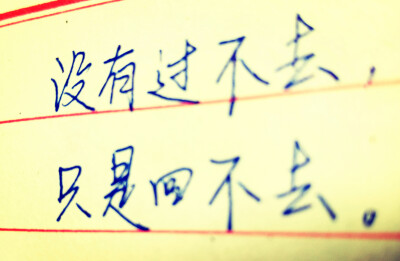 没有过不去，
只是回不去。